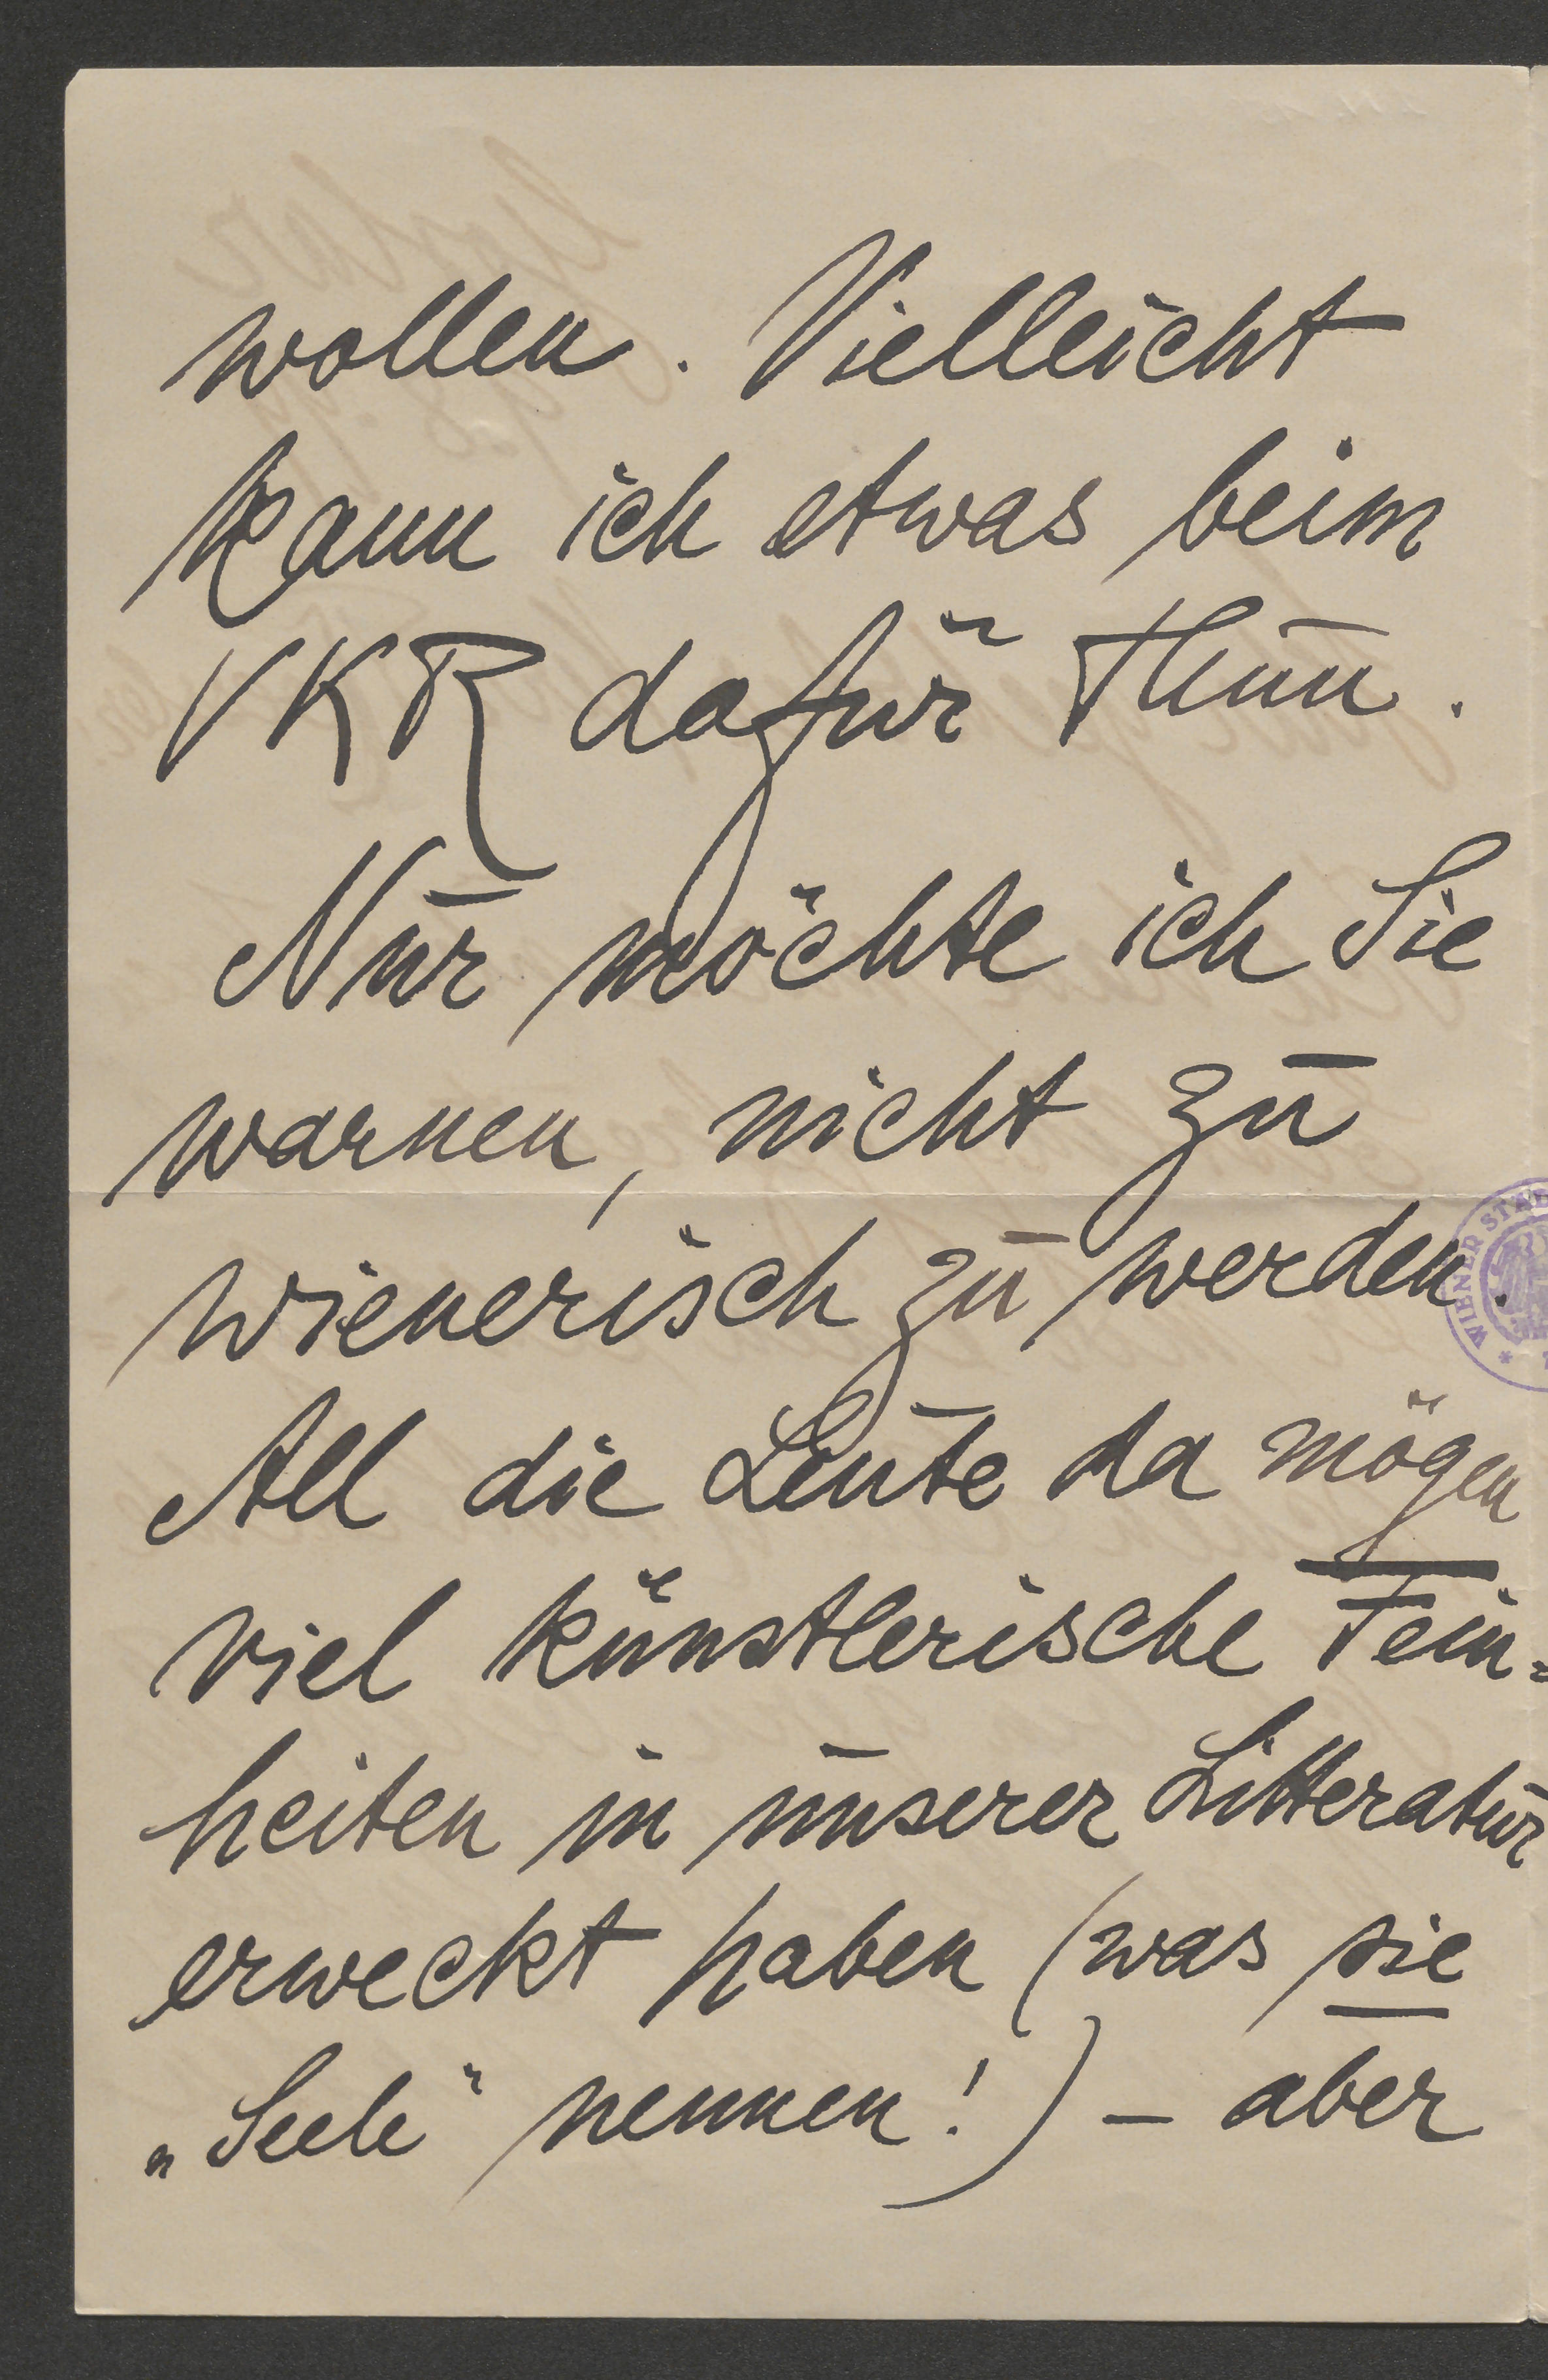 wollen. Vielleicht
kann ich etwas beim
VKR dafür thun.
Nur möchte ich Sie
warnen, nicht zu
wienerisch zu werden.
All die Leute da mögen
viel künstlerische Fein=
heiten in unserer Litteratur
erweckt haben (was sie
„Seele“ nennen!) – aber
WIENER STAD